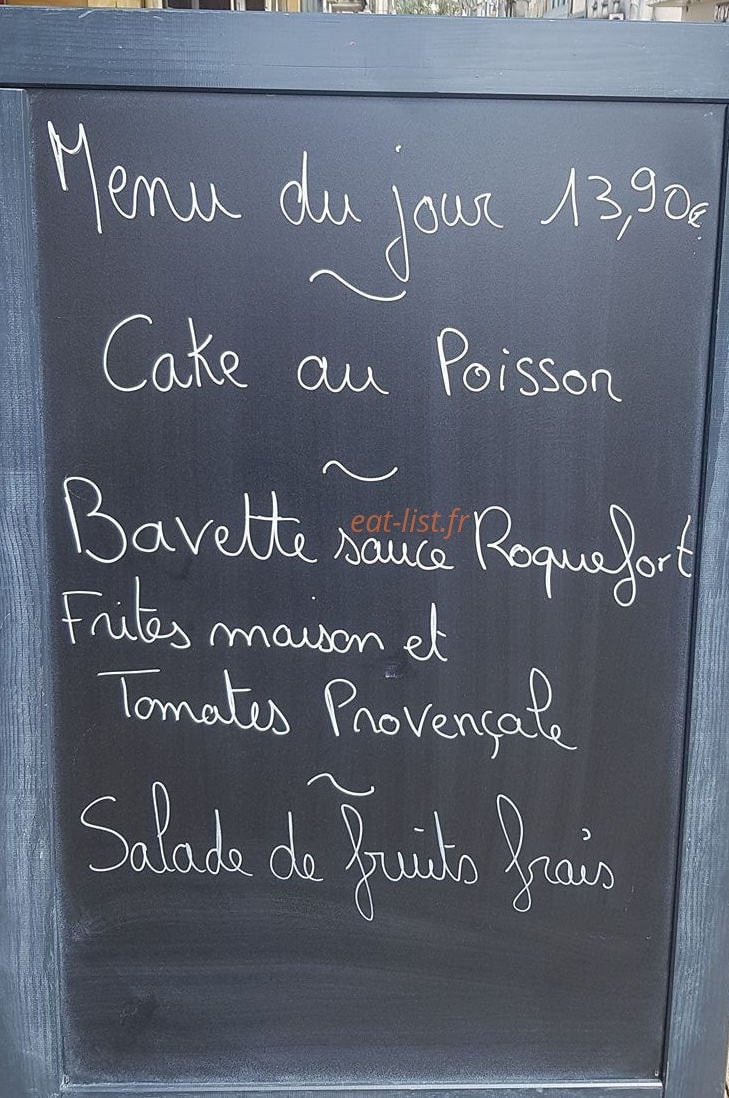 Menu du jour 13,90€
~
Cake au Poisson
~
Bavette sauce Roquefort
eat-list.fr
Frites maison et
Tomates Provençale
~
Salade de fruits frais